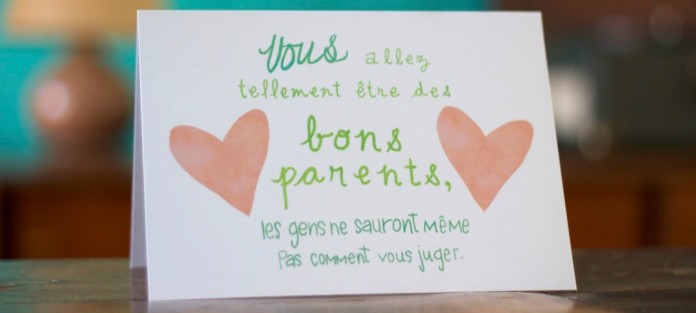 Vous allez
tellement être des
bons
parents,
les gens ne sauront même
pas comment vous juger.